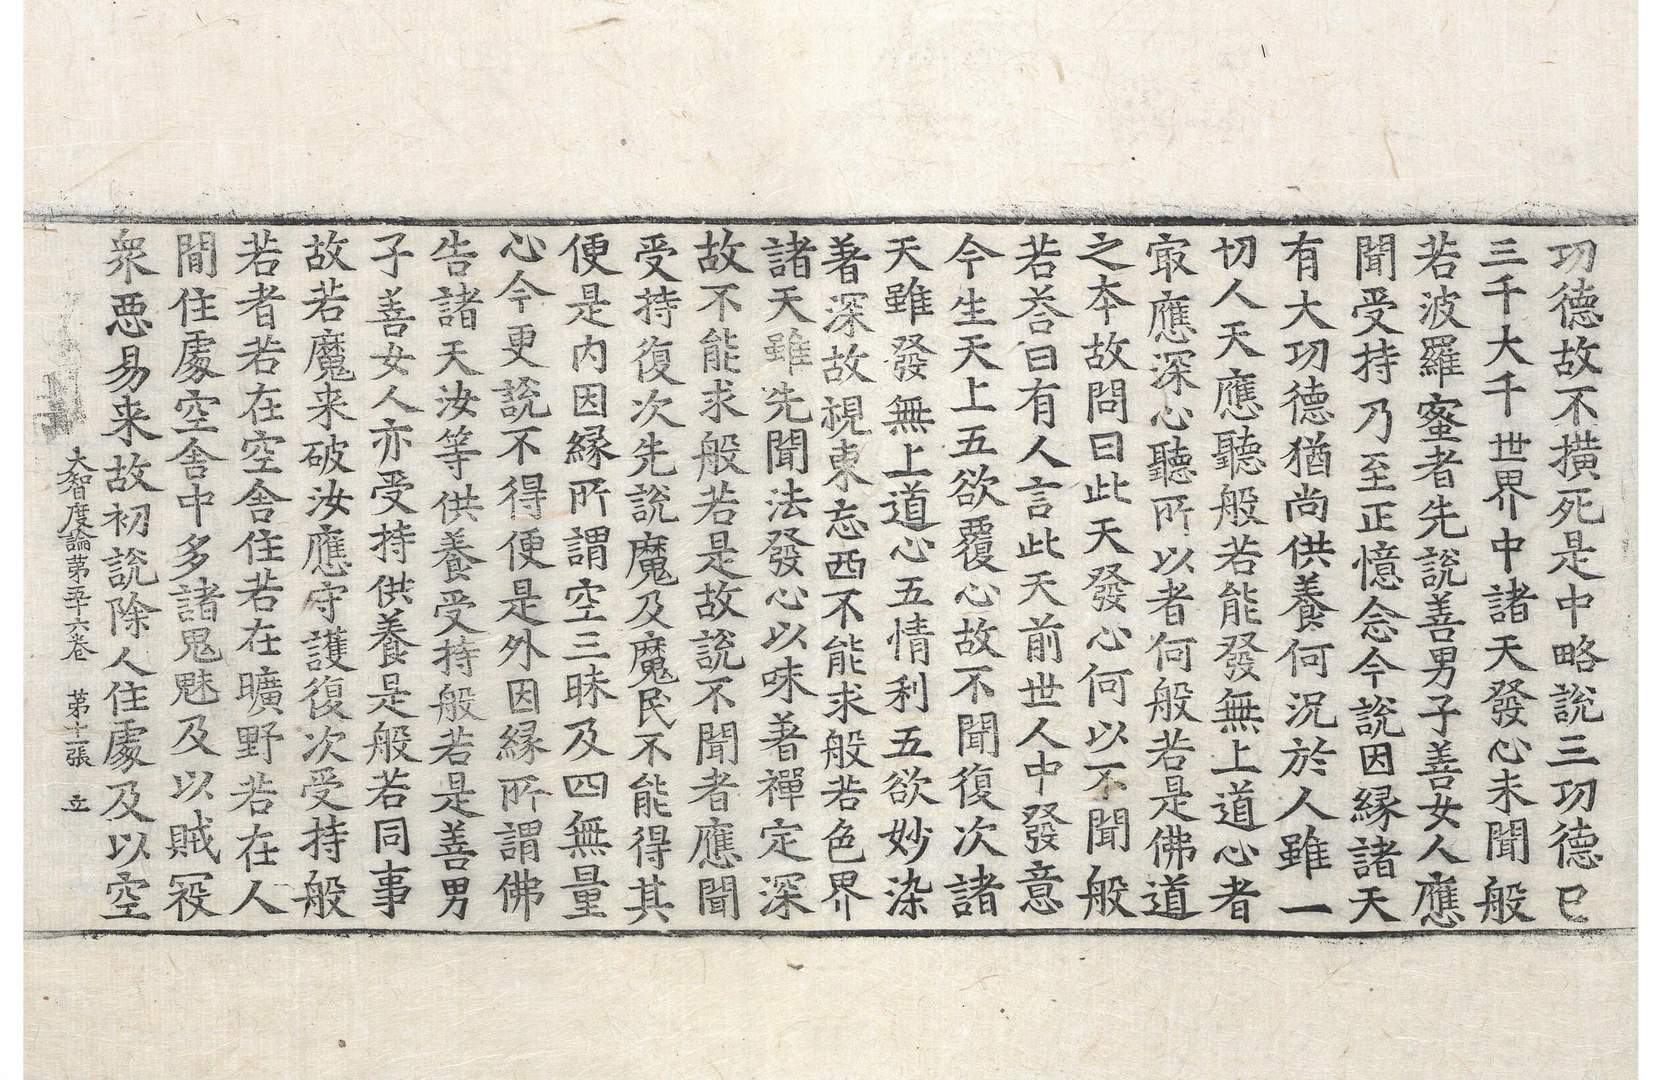 功德故不横死是中略說三功德已
三千大千世界中諸天發心未聞般
若波羅蜜者先說善男子善女人應
聞受持乃至正憶念今說因緣諸天
有大功德猶尚供養何況於人雖一
切人天應聽般若能發無上道心者
㝡應深心聽所以者何般若是佛道
之夲故問曰此天發心何以不聞般
若荅曰有人言此天前世人中發意
今生天上五欲覆心故不聞復次諸
天雖發無上道心五情利五欲妙染
著深故視東忘西不能求般若色界
諸天雖先聞法發心以味著禪定深
故不能求般若是故說不聞者應聞
受持復次先說魔及魔民不能得其
便是内因緣所謂空三昧及四無量
心今更說不得便是外因緣所謂佛
告諸天汝等供養受持般若是善男
子善女人亦受持供養是般若同事
故若魔来破汝應守護復次受持般
若者若在空舍住若在曠野若在人
間住處空舍中多諸鬼魅及以賊㓂
衆惡易来故初說除人住處及以空
大智度論第五十六卷 第十二張 立